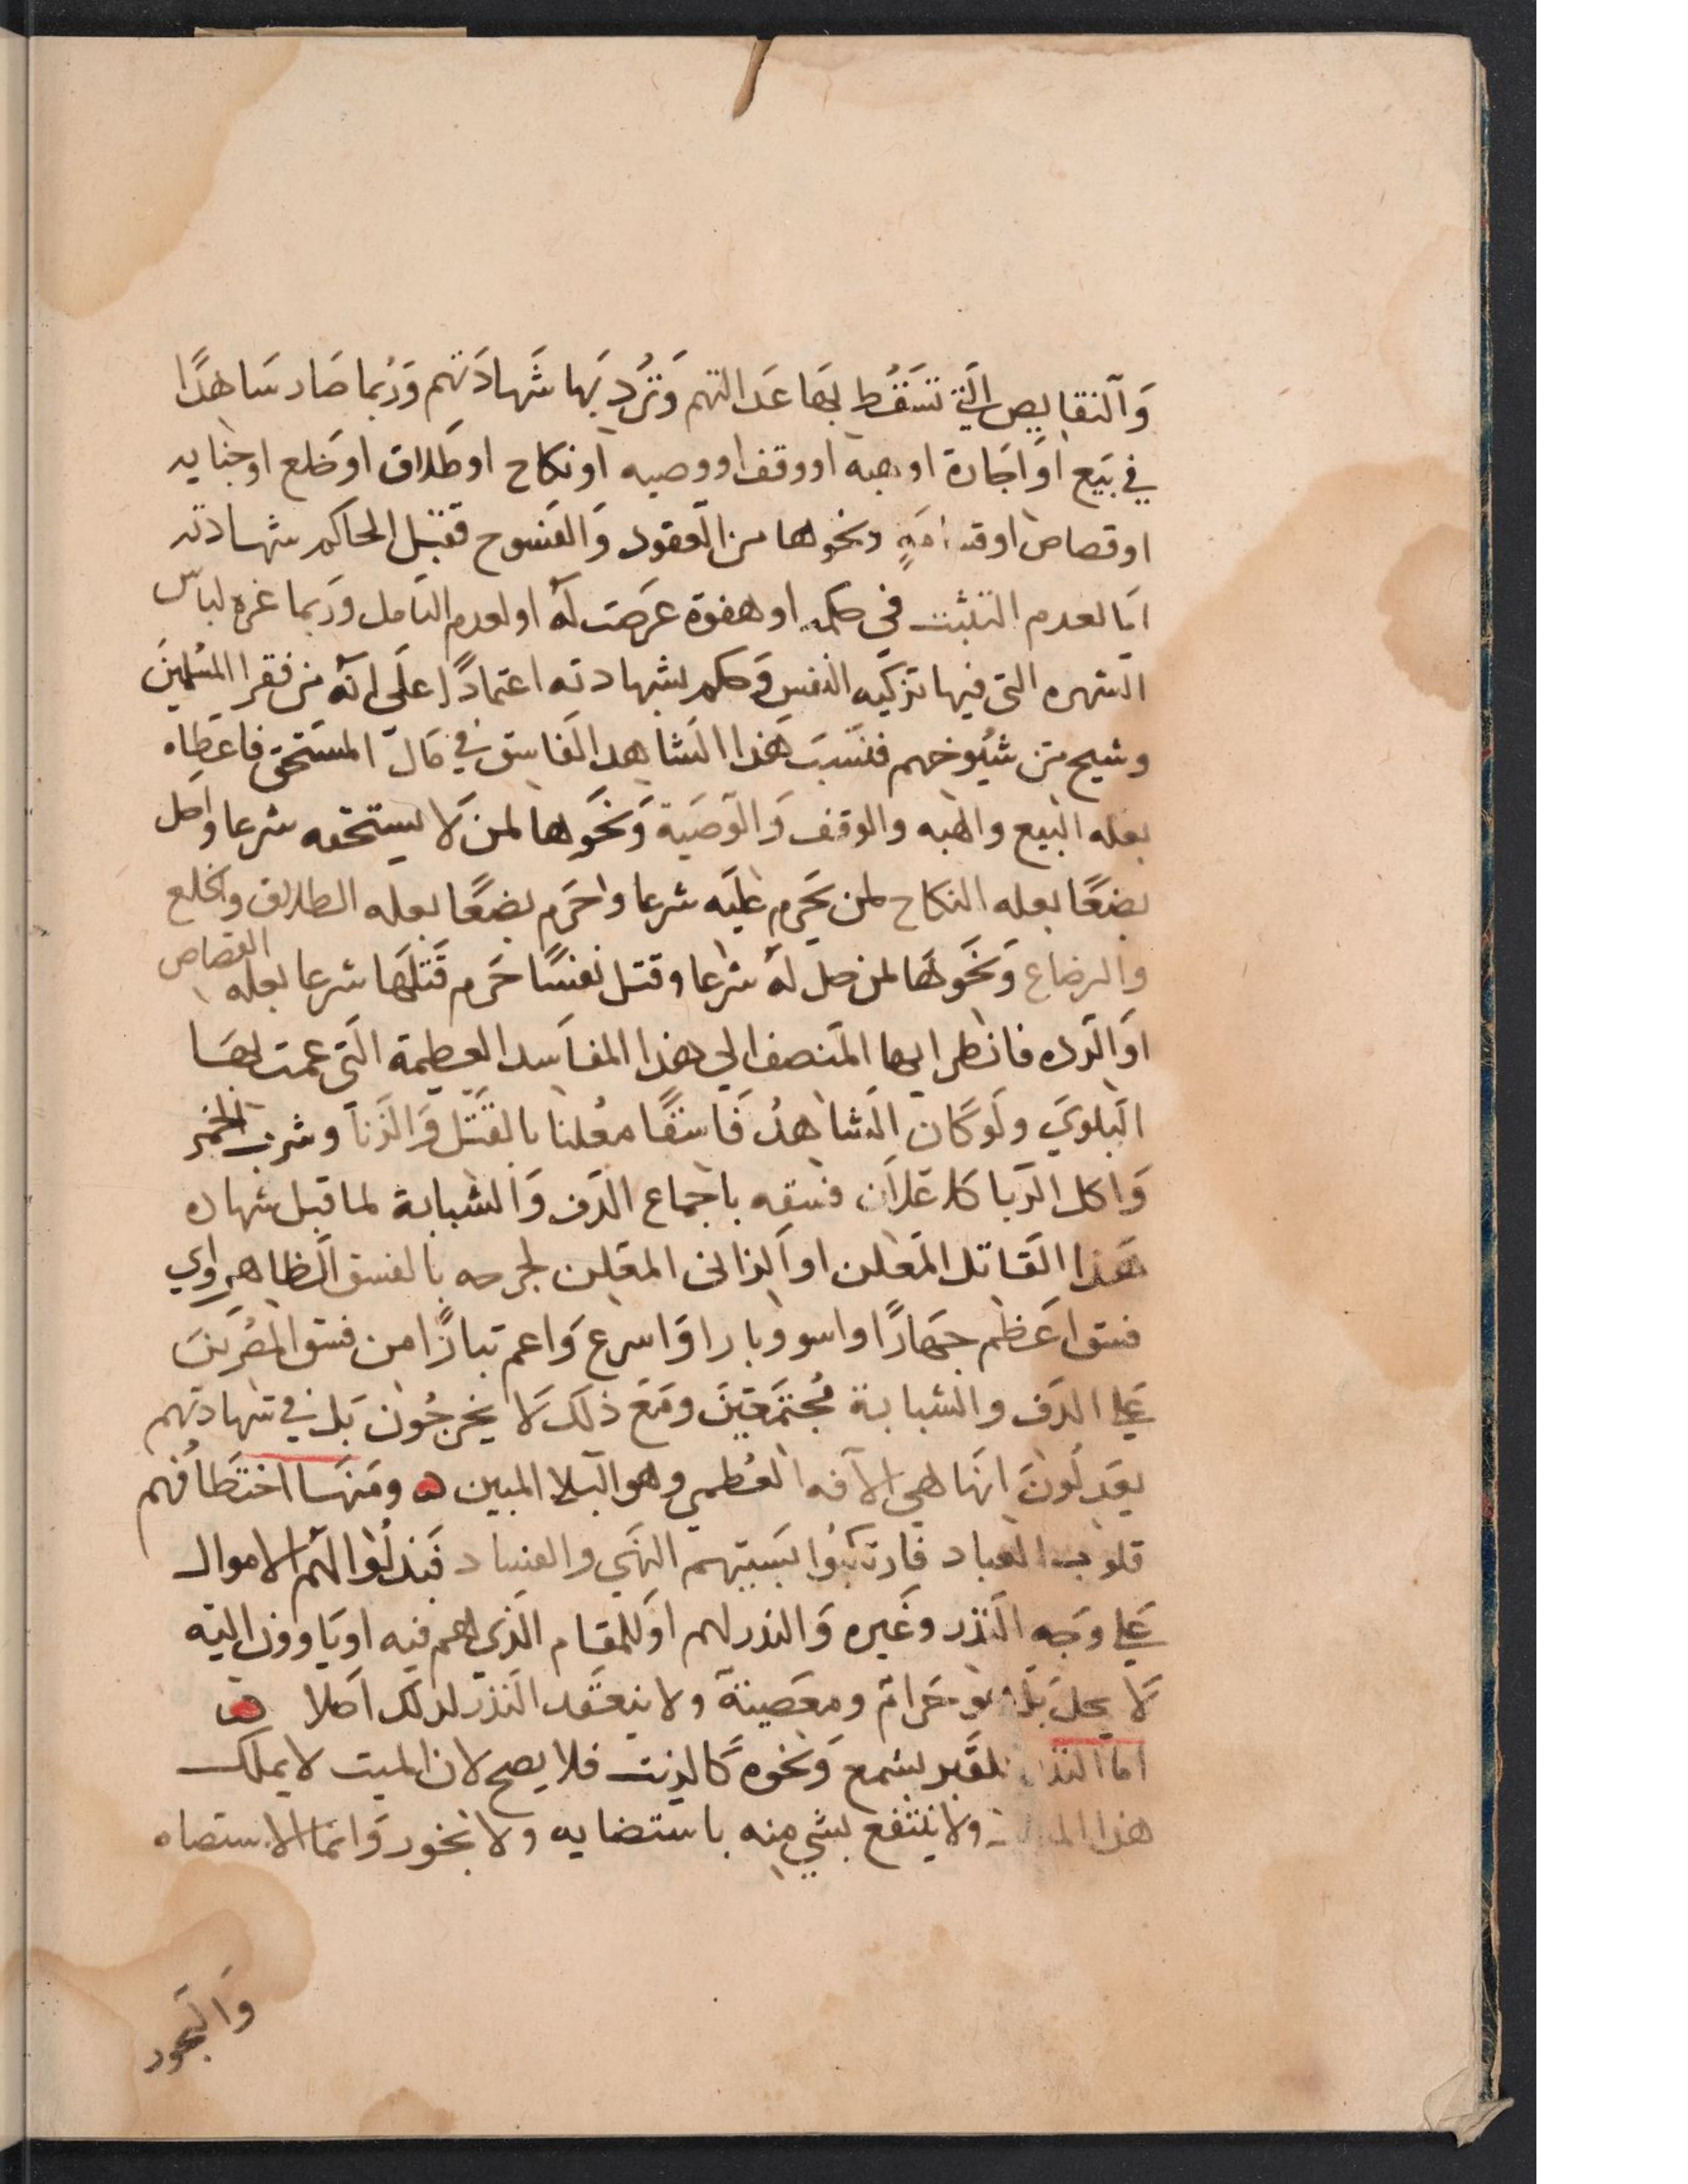 وَالنقايص التي تسَقُط بهَا عَدالتهم وَتُرَد بهَا شَهادَتهم وَرُبما صَار شَاهدًا
في بَيع اوَ اجَارة او هبه او وقف او وصيه او نكاح او طَلاق او خلع او جنايه
او قصاص او ونحوها من العقود وَالفسوح فقبل الحاكم شهادته
امَا لعدم التثبت في حكمه او هفوة عرَضت لَه او لعدم التامل وَربما غره لباس
الشهره التى فيها تزكيه النفس وَحكم بشهادته اعتمادًا على انه من فقرا المسُلمينَ
وشيح من شيُوخهم فتسَبب هَذا الشاهد الفَاسق في مَال المسَتحق فاعطاه
بعله البيع والهبه والوقف وَالوَصَية وَنحَوها لمن لَا يستحقه شرعا واحل
بضعًا بعله النكاح لمن يحَرم عليَه شرعا واحَرم بضعًا بعله الطلاق والخلع
والرضاع وَنحَوهَا لمن حل لهُ شرعا وقتل نفسًا حَرم قَتلهَا شرعا بعله القصاص
اوَ الرده فانظر ايها المنصف الي هذا المفاسد العظيمة التَى عمت بهَا
البلوي ولَو كَان الشاهدُ فَاسقًا معُلنا بالقَتل وَالزنا وشرب الخمر
وَاكل الرَبا كاعَلان فسقه باجماع الدَف وَالشبابة لما قبل شهاده
هَذا القَاتل المعَلن اوَ الزانى المعَلن لجرحه بالفسق الظاهر واي
فسق اعَظم جهَارًا واسو وبارا وَاسرع وَاعم تبارًا من فسق المصُرّينَ
عَلي الدَف والشبابة مُجتمَعَينَ ومَعَ ذلَك لَا يخرجُون بَل في شهادتهم
يعَدِلُونَ انهَا هي الآفه العُظمي وهو البلا المبين ه ومنهَا اختطَافُهم
قلوب العباد فارتكبُوا بسَببهم النهَي والفساد فبَذلُوا لهُم الاموال
عَلي وَجه النَذر وغَيره وَالنذر لهم اوَ للمقام الذي هم فيه او يَاوون اليَه
لَا يحل بَل هو حَرام ومعَصيَة ولا ينعقَد النذر لذلك اصَلا ه
امَا النذر للقَبر بشمع وَنحوه كَالزيت فلا يصح لان الميت لا يملك
هذا ولا ينتفع بشي منه باستضايه ولا بخور وَانمَا الاستضاه
وَالبخور